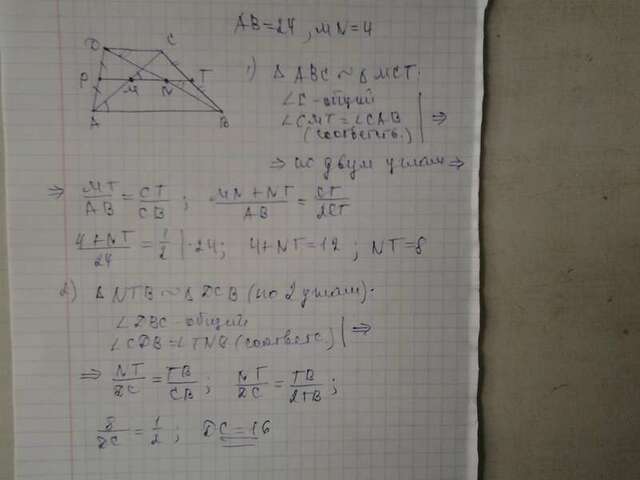 AB=24, MN=4
D C
P M N T
A B
1) Δ ABC ~ Δ MCT:
∠C - общий
∠CMT = ∠CAB | ⇒
(соответств.)
⇒ по двум углам ⇒
⇒ MT/AB = CT/CB ; MN+NT/AB = CT/2CT
4+NT/24 = 1/2 | ·24; 4+NT=12 ; NT=8
2) Δ NTB ~ Δ DCB (по 2 углам).
∠DBC - общий
∠CDB = ∠TNB (соответс.) | ⇒
⇒ NT/DC = TB/CB ; NT/DC = TB/2TB ;
8/DC = 1/2 ; DC=16